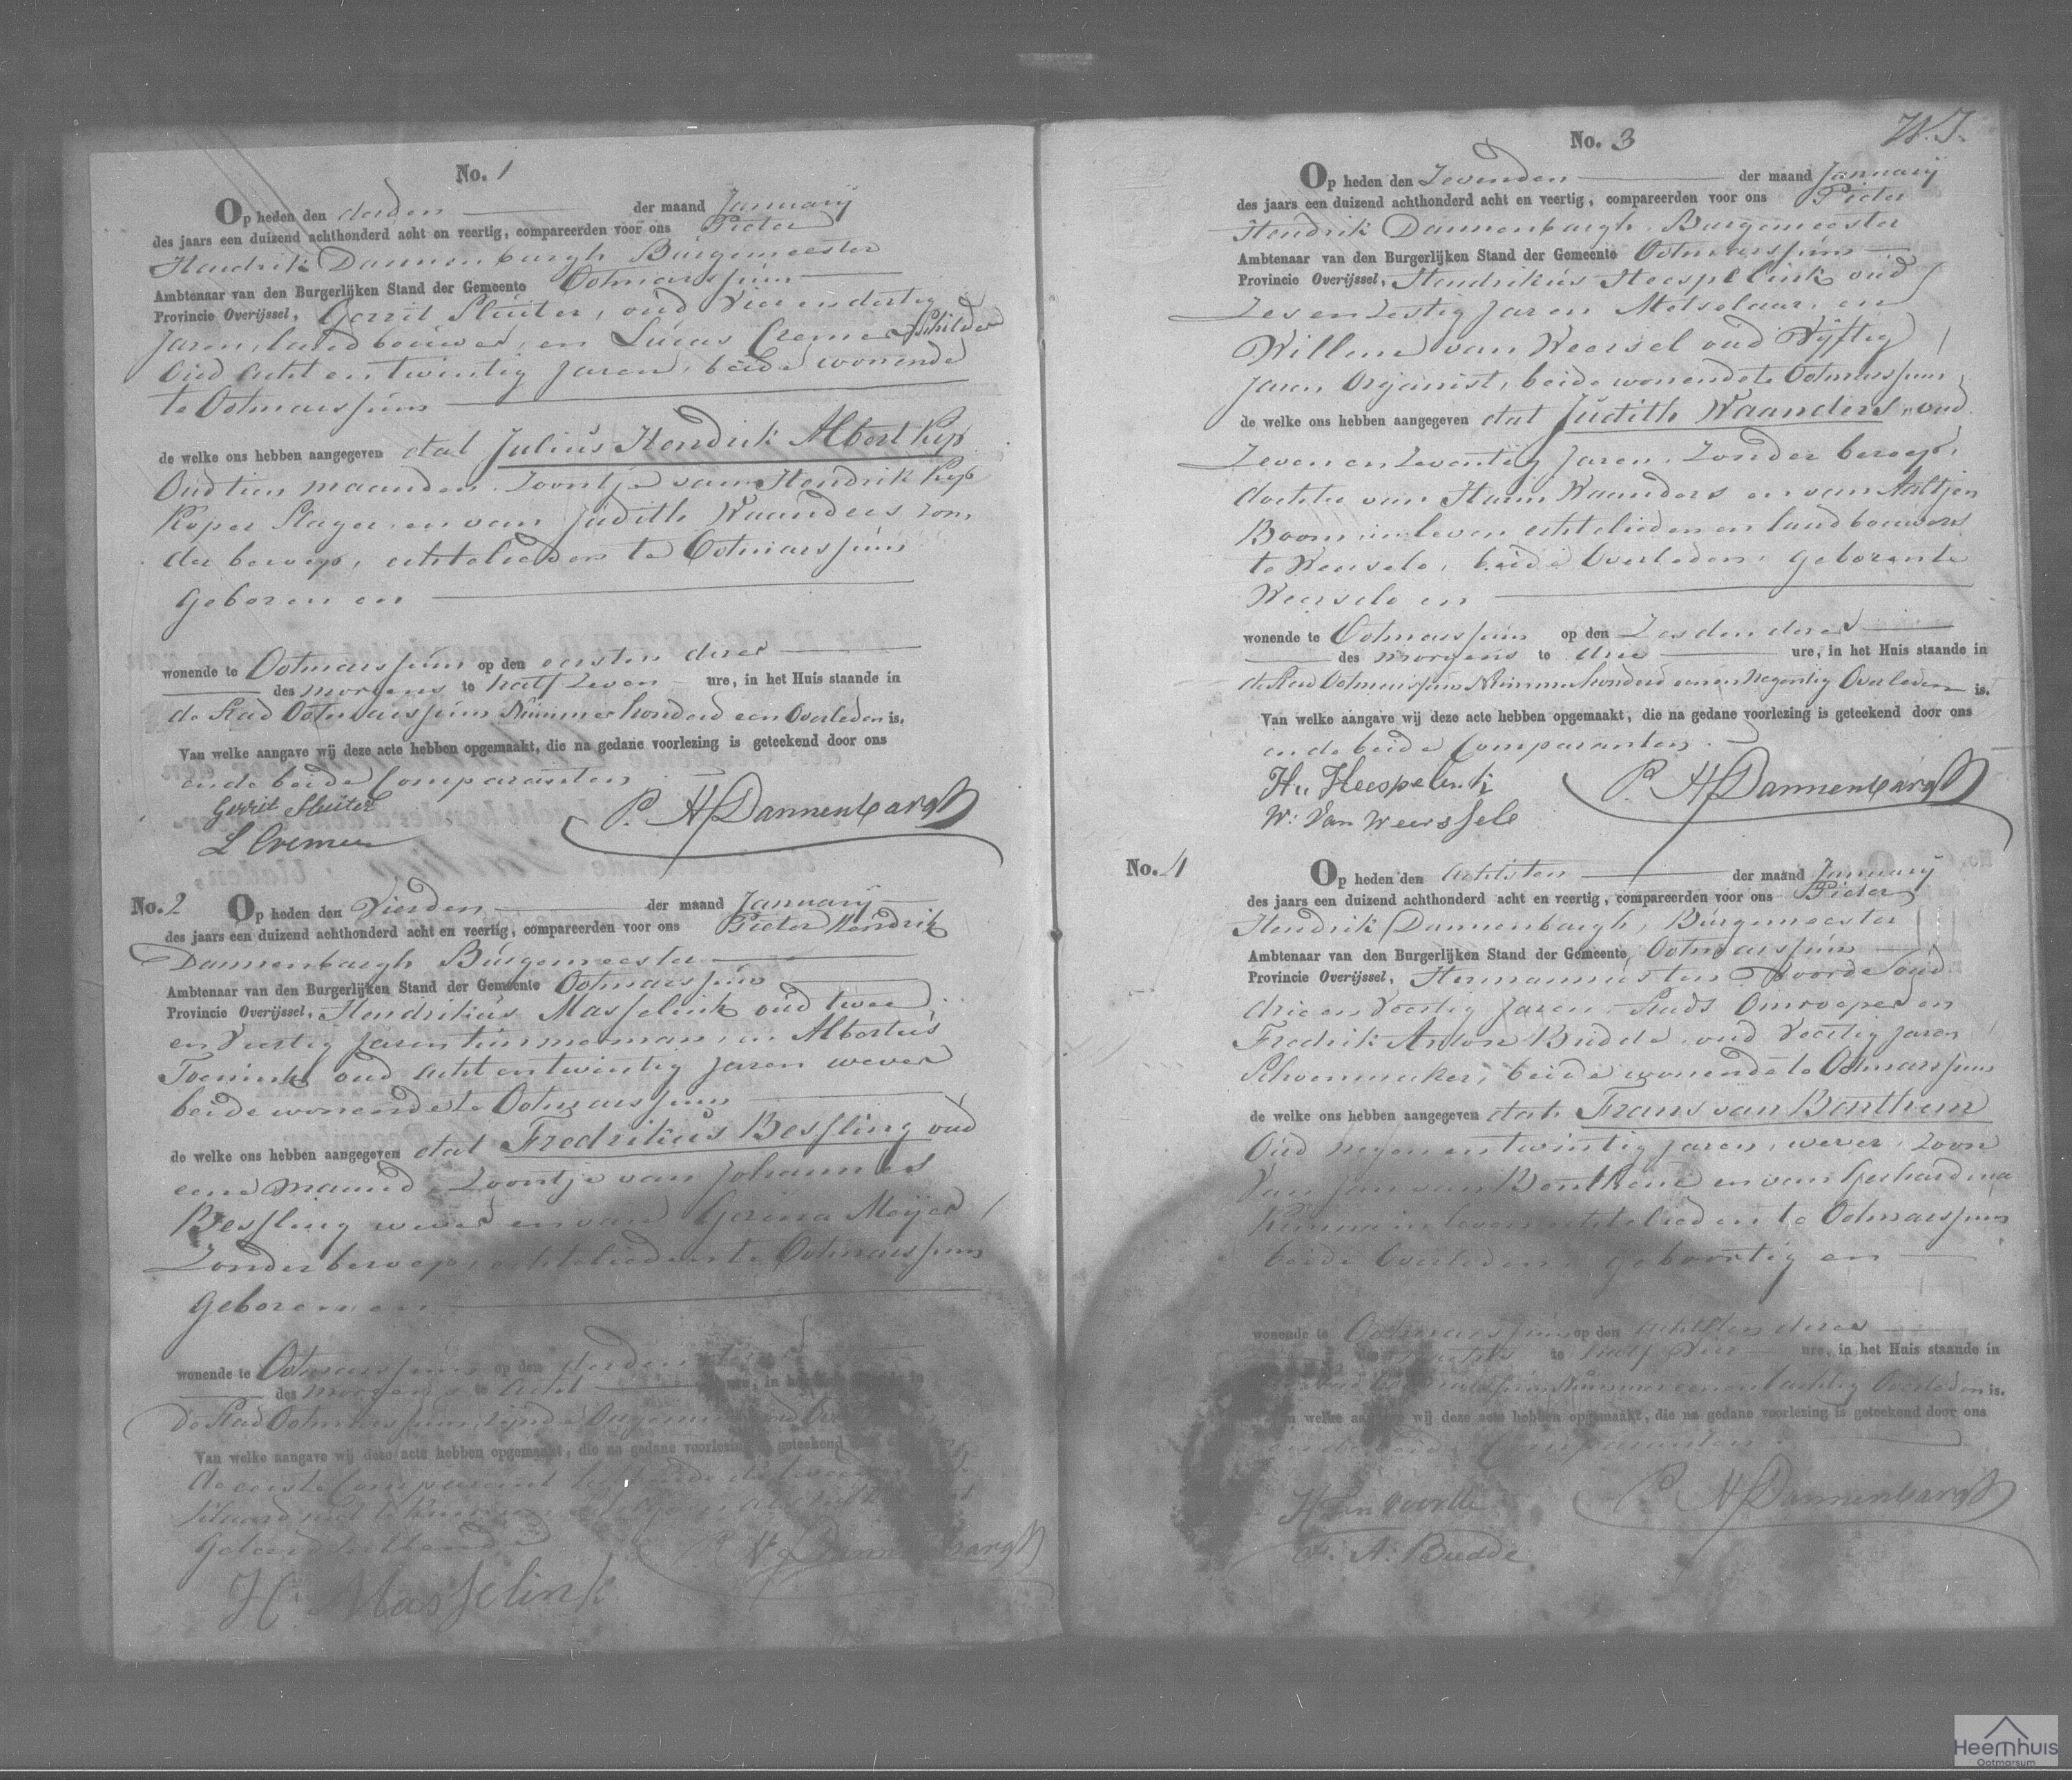 No. 1
Op heden den derden der maand Januarij
des jaars een duizend achthonderd acht en veertig, compareerden voor ons Pieter
Hendrik Dannenbargh Burgemeester
Ambtenaar van den Burgerlijken Stand der Gemeente Ootmarssum
Provincie Overijssel, Gerrit Sluiter, oud Vier en dertig
Jaren, landbouwer, en Lucas Cremer Schilder
Oud Acht en twintig Jaren, beide wonende
te Ootmarssum
de welke ons hebben aangegeven dat Julius Hendrik Albert Kip
Oud tien maanden Zoontje van Hendrik Kip
Koper Slager, en van Judith Waanders zon,
der beroep, echtelieden te Ootmarssum
Geboren en
wonende te Ootmarssum op den eersten dezer
des morgens te half Zeven ure, in het Huis staande in
de Stad Ootmarssum Nummer honderd een Overleden is.
Van welke aangave wij deze acte hebben opgemaakt, die na gedane voorlezing is geteekend door ons
en de beide Comparanten
Gerrit Sluiter
L Cremer
P. H Dannenbargh
No. 2
Op heden den Vierden der maand Januarij
des jaars een duizend achthonderd acht en veertig, compareerden voor ons Pieter Hendrik
Dannenbargh Burgemeester
Ambtenaar van den Burgerlijken Stand der Gemeente Ootmarssum
Provincie Overijssel, Hendrikus Masselink oud twee
en Veertig Jaren timmerman, en Albertus
oud Acht en twintig Jaren wever
beide wonende te Ootmarssum
de welke ons hebben aangegeven dat Fredrikus Bessling oud
eene maand, Zoontje van Johannes
Bessling wever en van Gerina Meijer
Zonder beroep, echtelieden te Ootmarssum
Geboren en
wonende te Ootmarssum op den derden dezer
des morgens te acht ure, in het Huis staande in
de Stad Ootmarssum
Van welke aangave wij deze acte hebben opgemaakt, die na gedane voorlezing is geteekend door
de eerste Comparant hebbende de tweede
klaard niet te kunnen
Geleerd hebbende
H. Masselink
P. H Dannenbargh
W.J.
No. 3
Op heden den Zevenden der maand Januarij
des jaars een duizend achthonderd acht en veertig, compareerden voor ons Pieter
Hendrik Dannenbargh, Burgemeester
Ambtenaar van den Burgerlijken Stand der Gemeente Ootmarssum
Provincie Overijssel, Hendrikus Heespelink oud
Zes en Zestig Jaren Metselaar, en
Willem van Weersel oud Vijftig
Jaren Organist, beide wonende te Ootmarssum
de welke ons hebben aangegeven dat Judith Waanders, oud
Zeven en Zeventig Jaren, Zonder beroep,
dochter van Harm Waanders en van Aaltjen
Boom in leven echtelieden en landbouwers
te Weerselo, beide Overleden, geboren te
Weerselo en
wonende te Ootmarssum op den Zesden dezer
des morgens te drie ure, in het Huis staande in
de Stad Ootmarssum Nummer honderd een en Negentig Overleden is.
Van welke aangave wij deze acte hebben opgemaakt, die na gedane voorlezing is geteekend door ons
en de beide Comparanten.
Hs Heespelink
W: Van Weerssele
P. H Dannenbargh
No. 4
Op heden den Achtsten der maand Januarij
des jaars een duizend achthonderd acht en veertig, compareerden voor ons Pieter
Hendrik Dannenbargh, Burgemeester
Ambtenaar van den Burgerlijken Stand der Gemeente Ootmarssum
Provincie Overijssel, Hermannus ten Voorde oud
drie en Veertig Jaren, Stads Omroeper en
Fredrik Anton Budde, oud Veertig Jaren
Schoenmaker, beide wonende te Ootmarssum
de welke ons hebben aangegeven dat Frans van Benthem
Oud negen en twintig jaren, wever, Zoon
Van Jan van Benthem en van Gerhardina
in leven echtelieden te Ootmarssum
beide Overleden, geboortig en
wonende te Ootmarssum op den Achtsten dezer
des te half Vier ure, in het Huis staande in
de Stad Ootmarssum Nummer een en tachtig Overleden is.
Van welke aangave wij deze acte hebben opgemaakt, die na gedane voorlezing is geteekend door ons
en de beide Comparanten.
H ten Voorde
F. A. Budde
P. H Dannenbargh
Heemhuis
Ootmarsum